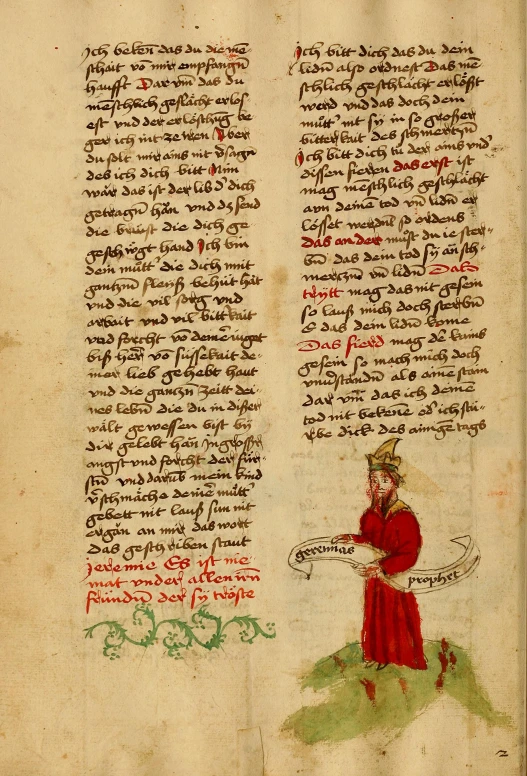 Ich beken̄ das du die me¯
schait vō mir empfangn̄
haust Dar vm̄ das du
mēschlich geslächt erlos
est und der erlöshūg be
ger ich nit ze weren Aber
du solt mir ains nit v̓sagē
des ich dich bitt Nim
war das ist der lib d̓ dich
getragn̄ hān und dz send
die brüst die dich ge
geschögt hand Ich bin
dein mūtt̓ die dich mit
gantzn̄ fleiß behüt hāt
und die vil sorg und
arbait und vil bittkait
und forcht vō deine͂r iuget
biß her vō süssekait de-
iner lieb gehebt haut
und die gantzn̄ zeitt dei-
nes lebn̄ die du in disser
wält gewessen bist by
dir gelebt hān In grosser
angst und forcht der für-
stn̄ und darūb mein kind
v̓schmäche deine͂r mūtt̓
gebett nit lauß sun nit
ergān an mir das wort
das geschriben staut
Jeremie Es ist nie
mat under allen irn̄
fründn̄ der sy tröste
Ich bitt dich das du dein
lidn̄ also ordnest Das me͂
schlich geschlächt erlößt
werd und das doch dein
mūtt̓ nit sy in so grosser
bitterkait des schmertzn̄
Ich bitt dich tū der ains und̓
dissen fieren das erst ist
mag meschlich geschlächt
aun deine͂ tod vn̄ lidn̄ er
lösset werdn̄ so ordens
das ander mūst du ie ster-
bn̄ das dein tod sy ān sch-
mertzn̄ vn̄ lidn̄ Das
tritt mag das nit gesein
so lauß mich doch sterbn̄
E das dein lidn̄ kome
Das fierd mag de͂ kains
gesein so mach mich doch
unv̓standn̄ als aine͂ stain
dar vm̄ das ich deine͂
tod nit bekene ob ich stü-
rbe dick des ainge tags
geremias
prophet
2